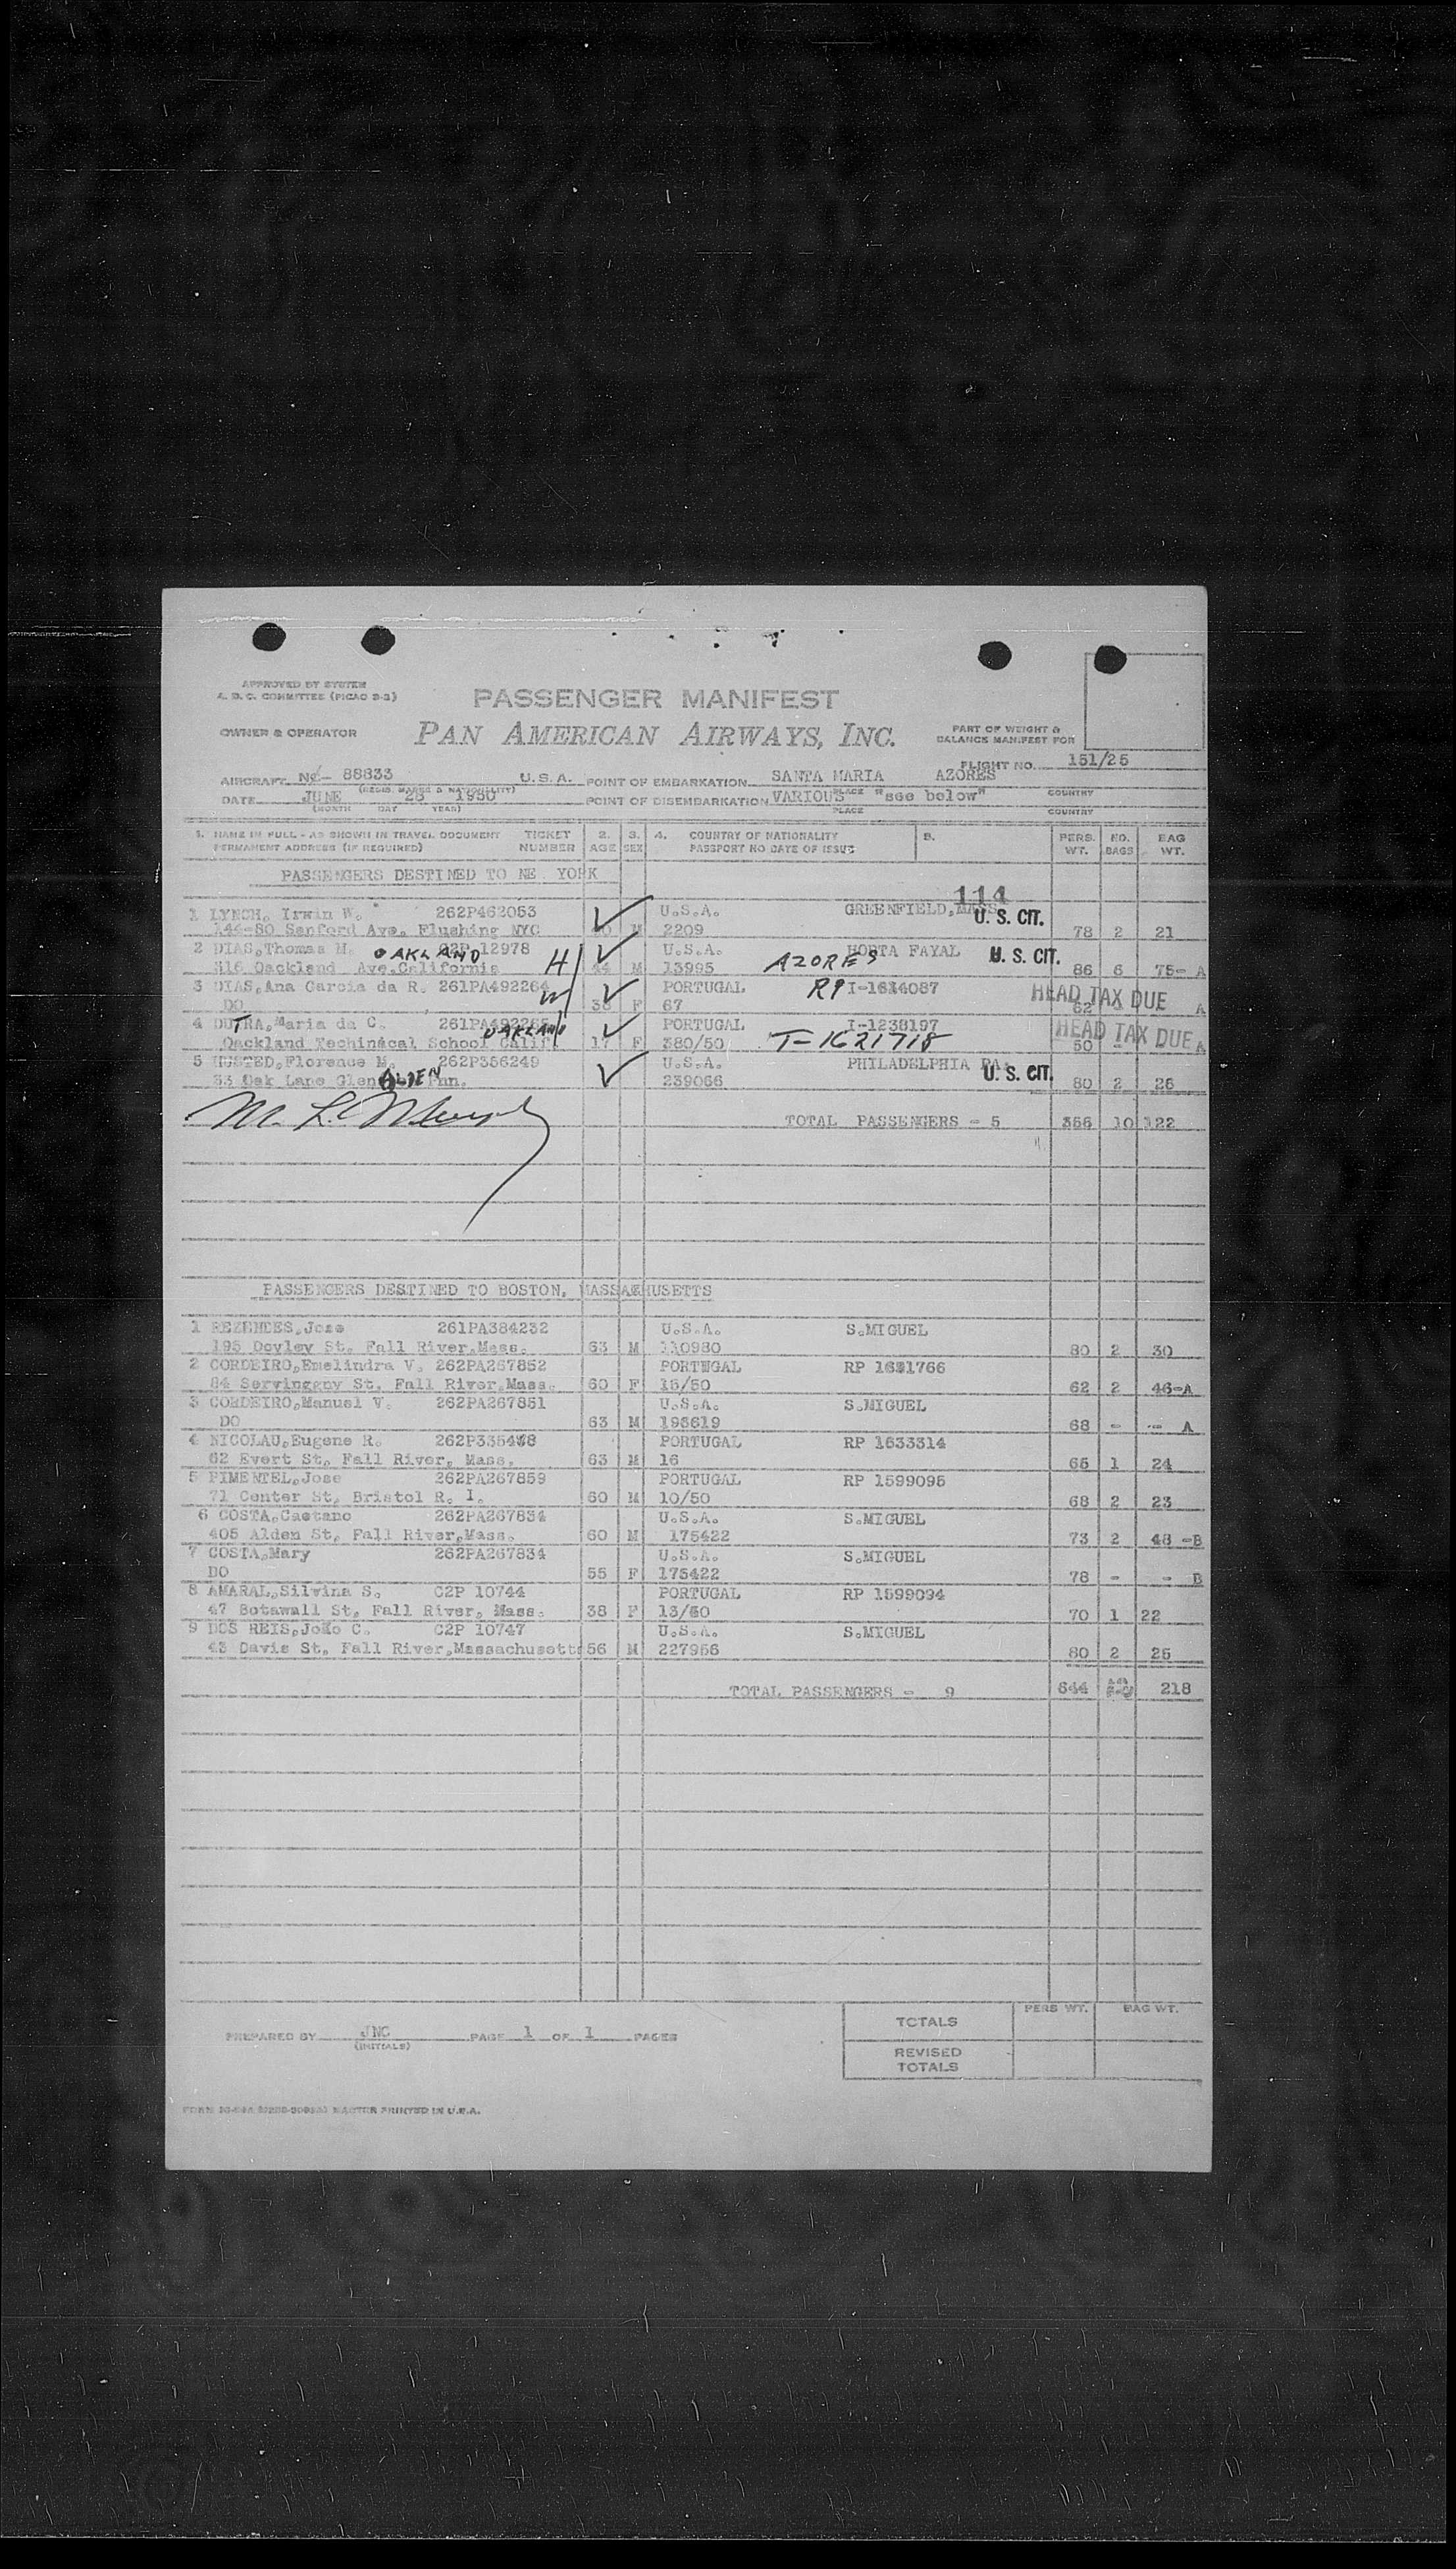 APPROVED BY SYSTEM
A. D. C. COMMITTEE (PICAO 3-3)
PASSENGER MANIFEST
OWNER & OPERATOR
PAN AMERICAN AIRWAYS, INC.
PART OF WEIGHT &
BALANCE MANIFEST FOR
FLIGHT NO. 151/25
AIRCRAFT NC- 88833 U.S.A. POINT OF EMBARKATION SANTA MARIA AZORES
(REGIS. MARKS & NATIONALITY) PLACE COUNTRY
DATE JUNE 1950 POINT OF DISEMBARKATION VARIOUS "see below"
(MONTH DAY YEAR) PLACE COUNTRY
1. NAME IN FULL - AS SHOWN IN TRAVEL DOCUMENT TICKET 2. 3. 4. COUNTRY OF NATIONALITY 5. PERS. NO. BAG
PERMANENT ADDRESS (IF REQUIRED) NUMBER AGE SEX PASSPORT NO DATE OF ISSUE WT. BAGS WT.
PASSENGERS DESTINED TO NE YORK
114
1 LYNCH, Irwin W. 262P462053 U.S.A. GREENFIELD, MASS U. S. CIT.
144-80 Sanford Ave. Flushing NYC M 2209 78 2 21
2 DIAS, Thomas M. OAKLAND C2P 12978 U.S.A. HORTA FAYAL U. S. CIT.
416 Oackland Ave. California H 44 M 13995 AZORES 86 6 75- A
3 DIAS, Ana Garcia da R. 261PA492264 PORTUGAL RP I-1614087 HEAD TAX DUE
DO W 38 F 67 62 A
4 DUTRA, Maria da C. OAKLAND PORTUGAL I-1238197 HEAD TAX DUE
Oackland Techinacal School Calif. 17 F 380/50 T-1621718 50 - A
5 HUSTED, Florence M. 262P386249 U.S.A. PHILADELPHIA PA. U. S. CIT.
33 Oak Lane Glen ALDEN nn. 239066 80 2 26
TOTAL PASSENGERS - 5 356 10 122
PASSENGERS DESTINED TO BOSTON, MASSACHUSETTS
1 REZENDES, Jose 261PA384232 U.S.A. S.MIGUEL
195 Dovley St. Fall River, Mass. 63 M 110980 80 2 30
2 CORDEIRO, Emelindra V. 262PA267852 PORTUGAL RP 1621766
84 St. Fall River Mass. 60 F 15/50 62 2 46-A
3 CORDEIRO, Manuel V. 262PA267851 U.S.A. S.MIGUEL
DO 63 M 196619 68 - -- A
4 NICOLAU, Eugene R. 262P335448 PORTUGAL RP 1633314
62 Evert St, Fall River, Mass. 63 M 16 65 1 24
5 PIMENTEL, Jose 262PA267859 PORTUGAL RP 1599095
71 Center St, Bristol R. I. 60 M 10/50 68 2 23
6 COSTA, Caetano 262PA267834 U.S.A. S.MIGUEL
405 Alden St, Fall River, Mass. 60 M 175422 73 2 48 -B
7 COSTA, Mary 262PA267834 U.S.A. S.MIGUEL
DO 55 F 175422 78 - - B
8 AMARAL, Silvina S. C2P 10744 PORTUGAL RP 1599094
47 Botawall St, Fall River, Mass. 38 F 13/50 70 1 22
9 DOS REIS, João C. C2P 10747 U.S.A. S.MIGUEL
43 Davis St, Fall River, Massachusetts 56 M 227956 80 2 25
TOTAL PASSENGERS - 9 644 218
PERS WT. BAG WT.
TOTALS
PREPARED BY JMC PAGE 1 OF 1 PAGES
(INITIALS)
REVISED
TOTALS
MASTER PRINTED IN U.S.A.